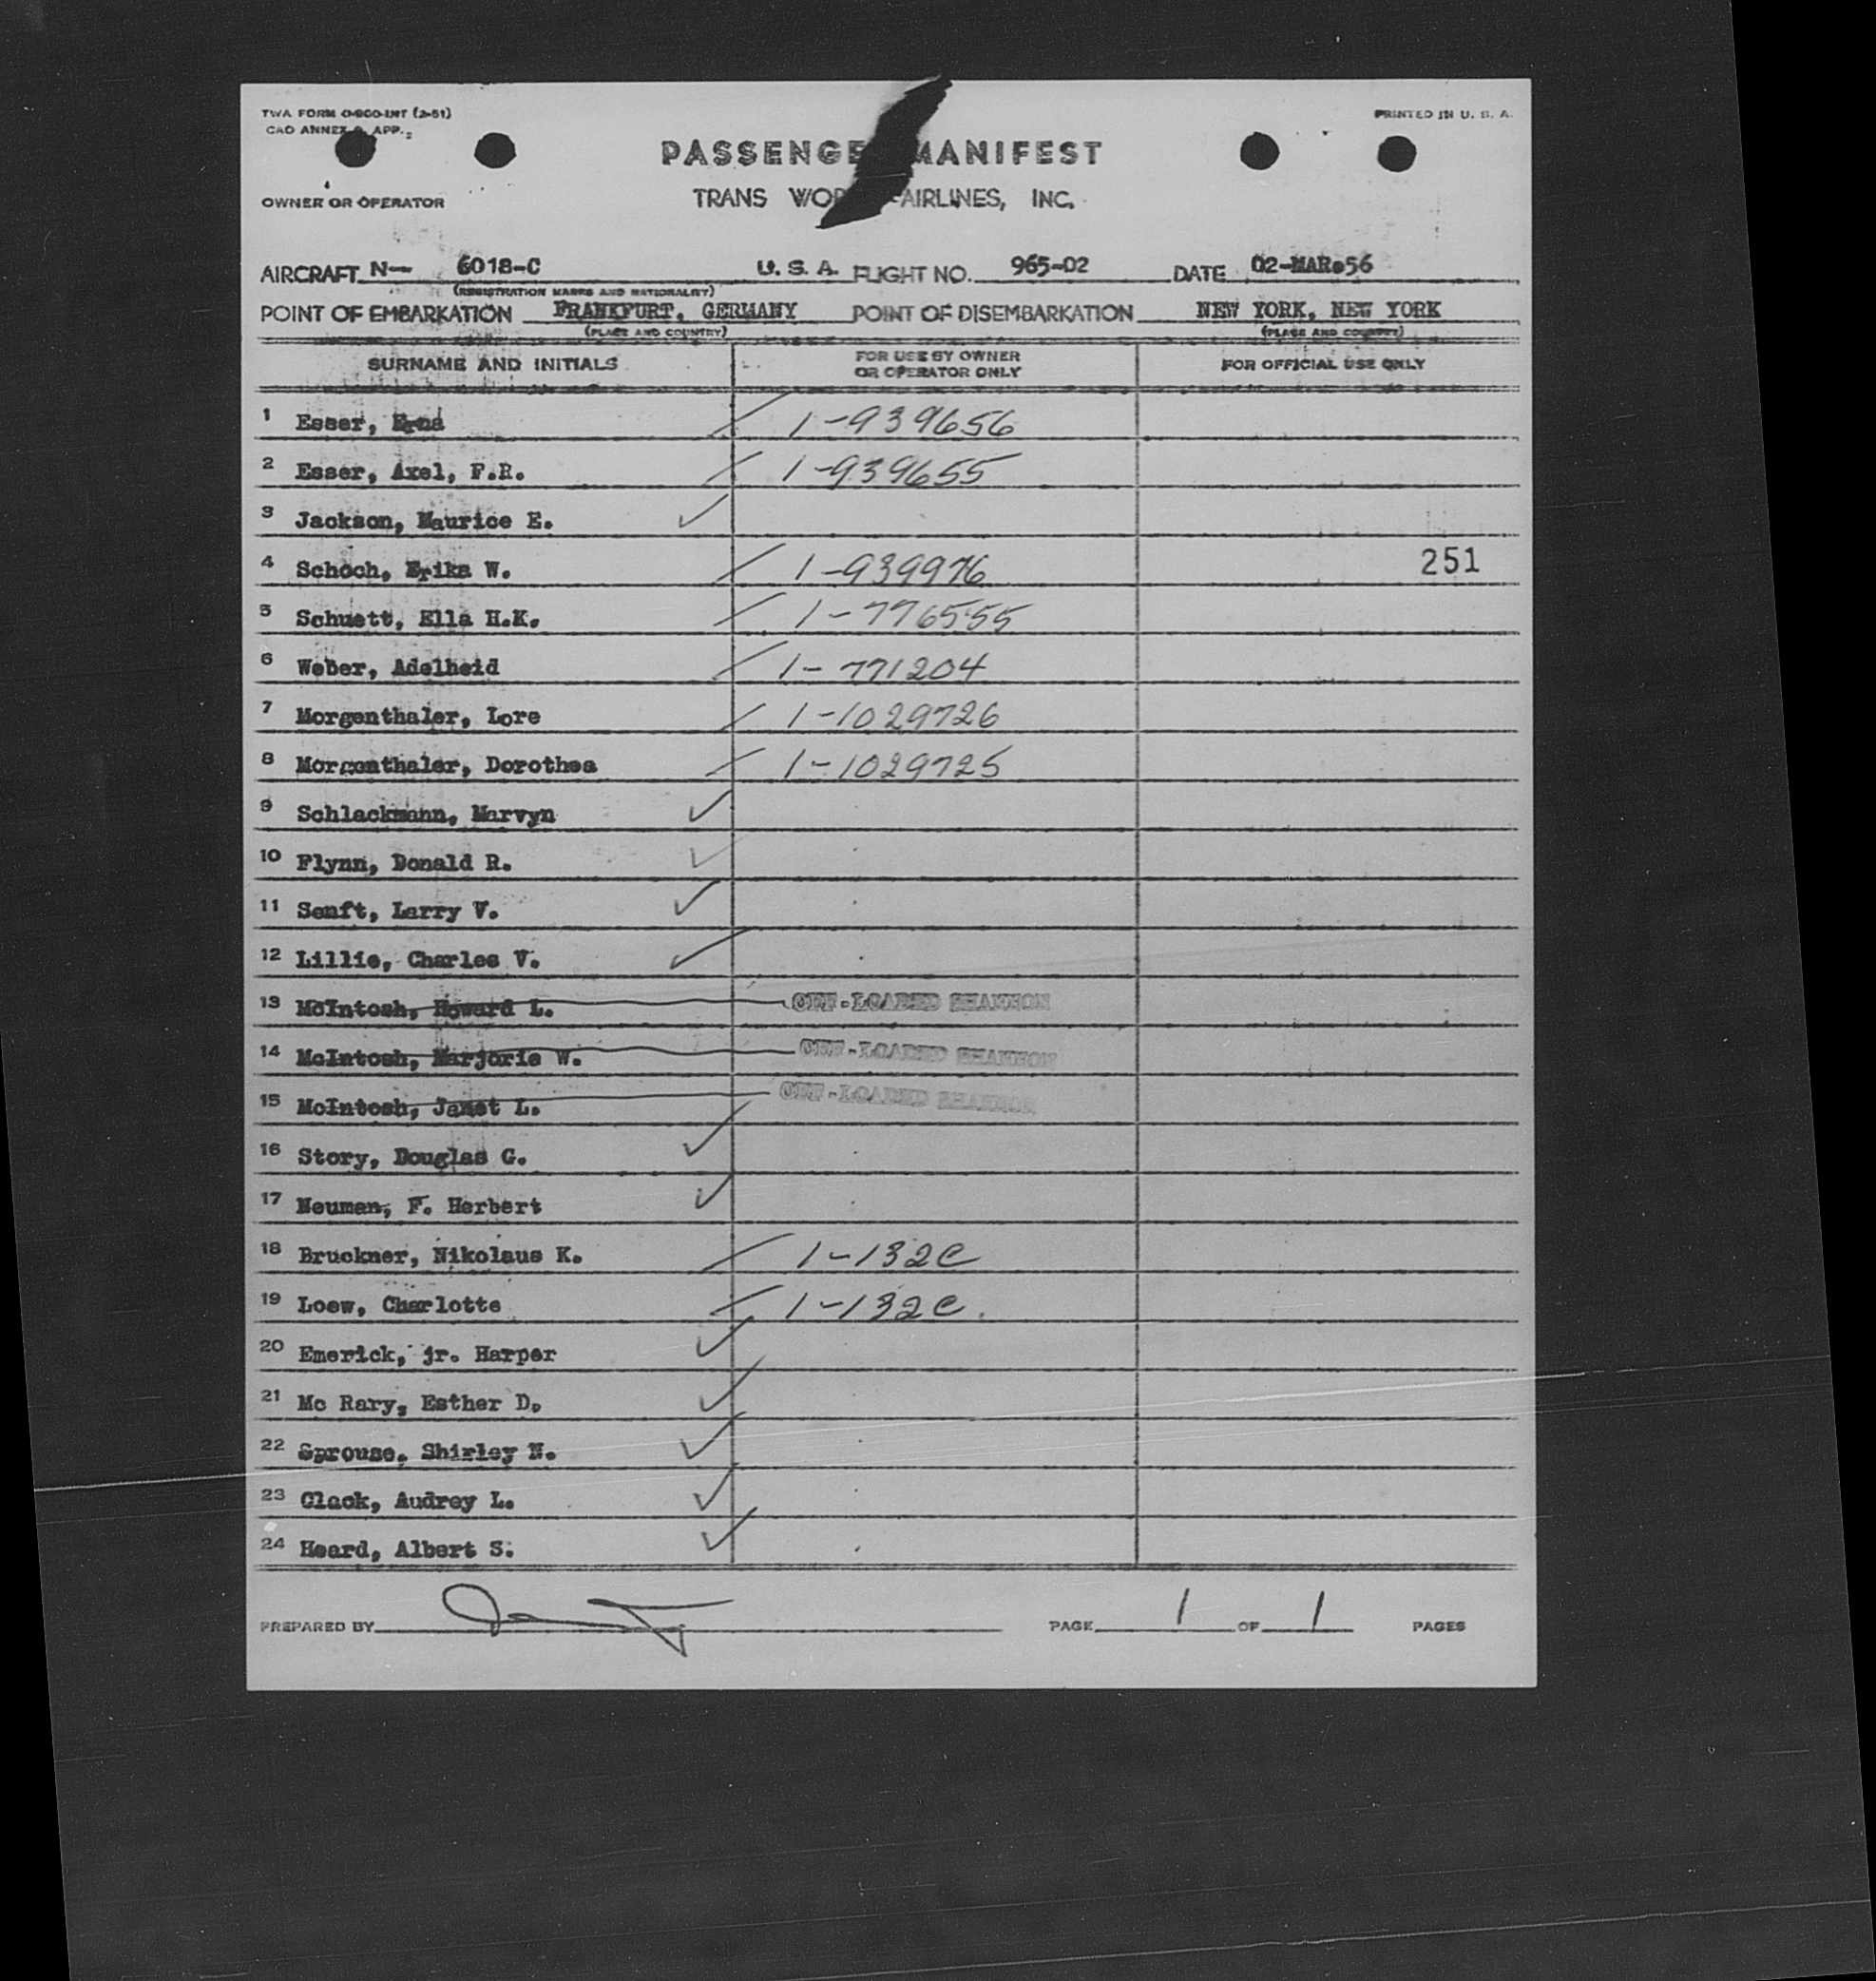 TWA FORM O-900-INT (2-51)
CAO ANNEX 9, APP. 2
PRINTED IN U. S. A.
PASSENGE MANIFEST
OWNER OR OPERATOR
TRANS WOR AIRLINES, INC.
AIRCRAFT N— 6018-C U. S. A. FLIGHT NO. 965-02 DATE 02-MAR.56
(REGISTRATION MARKS AND NATIONALITY)
POINT OF EMBARKATION FRANKFURT, GERMANY POINT OF DISEMBARKATION NEW YORK, NEW YORK
(PLACE AND COUNTRY) (PLACE AND COUNTRY)
SURNAME AND INITIALS FOR USE BY OWNER OR OPERATOR ONLY FOR OFFICIAL USE ONLY
1 Esser, Erna 1-939656
2 Esser, Axel, F.R. 1-939655
3 Jackson, Maurice E.
4 Schoch, Erika W. 1-939976 251
5 Schuett, Ella H.K. 1-776555
6 Weber, Adelheid 1-771204
7 Morgenthaler, Lore 1-1029726
8 Morgenthaler, Dorothea 1-1029725
9 Schlackmann, Marvyn
10 Flynn, Donald R.
11 Senft, Larry V.
12 Lillie, Charles V.
13 McIntosh, Howard L. OFF-LOADED SHANNON
14 McIntosh, Marjorie W. OFF-LOADED SHANNON
15 McIntosh, Janet L. OFF-LOADED SHANNON
16 Story, Douglas G.
17 Neuman, F. Herbert
18 Bruckner, Nikolaus K. 1-132C
19 Loew, Charlotte 1-132C.
20 Emerick, jr. Harper
21 Mc Rary, Esther D.
22 Sprouse, Shirley N.
23 Clack, Audrey L.
24 Heard, Albert S.
PREPARED BY PAGE 1 OF 1 PAGES